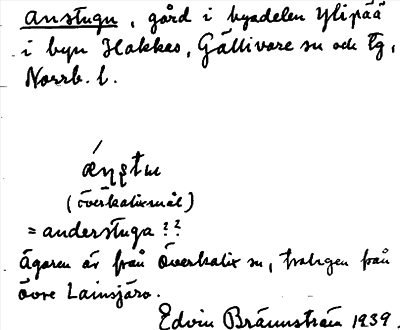 anstugu, gård i byadelen Ylipää
i byn Hakkas, Gällivare sn och tg,
Norrb. l.
(överkalixmål)
= anderstuga??
Ägaren är från Överkalix sn, troligen från
övre Lansjärv.
Edvin Brännström 1939.